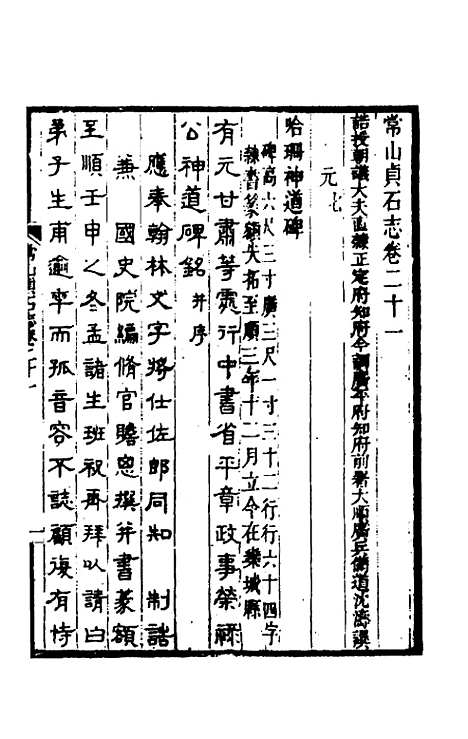 常山貞石志卷二十一
誥授朝議大夫直隸正定府知府今調廣平府知府前署大順廣兵備道沈濤譔
元七
哈珊神道碑
碑高六尺三寸廣三尺一寸三十二行行六十四字
隸書篆額失拓至順三年十二月立今在欒城縣
有元甘肅等處行中書省平章政事榮祿
公神道碑銘并序
應奉翰林文字將仕佐郎同知 制誥
兼 國史院編脩官贍思撰并書篆額
至順壬申之冬孟諸生班祝再拜以請白
弟子生甫逾卒而孤音容不誌顧復有恃